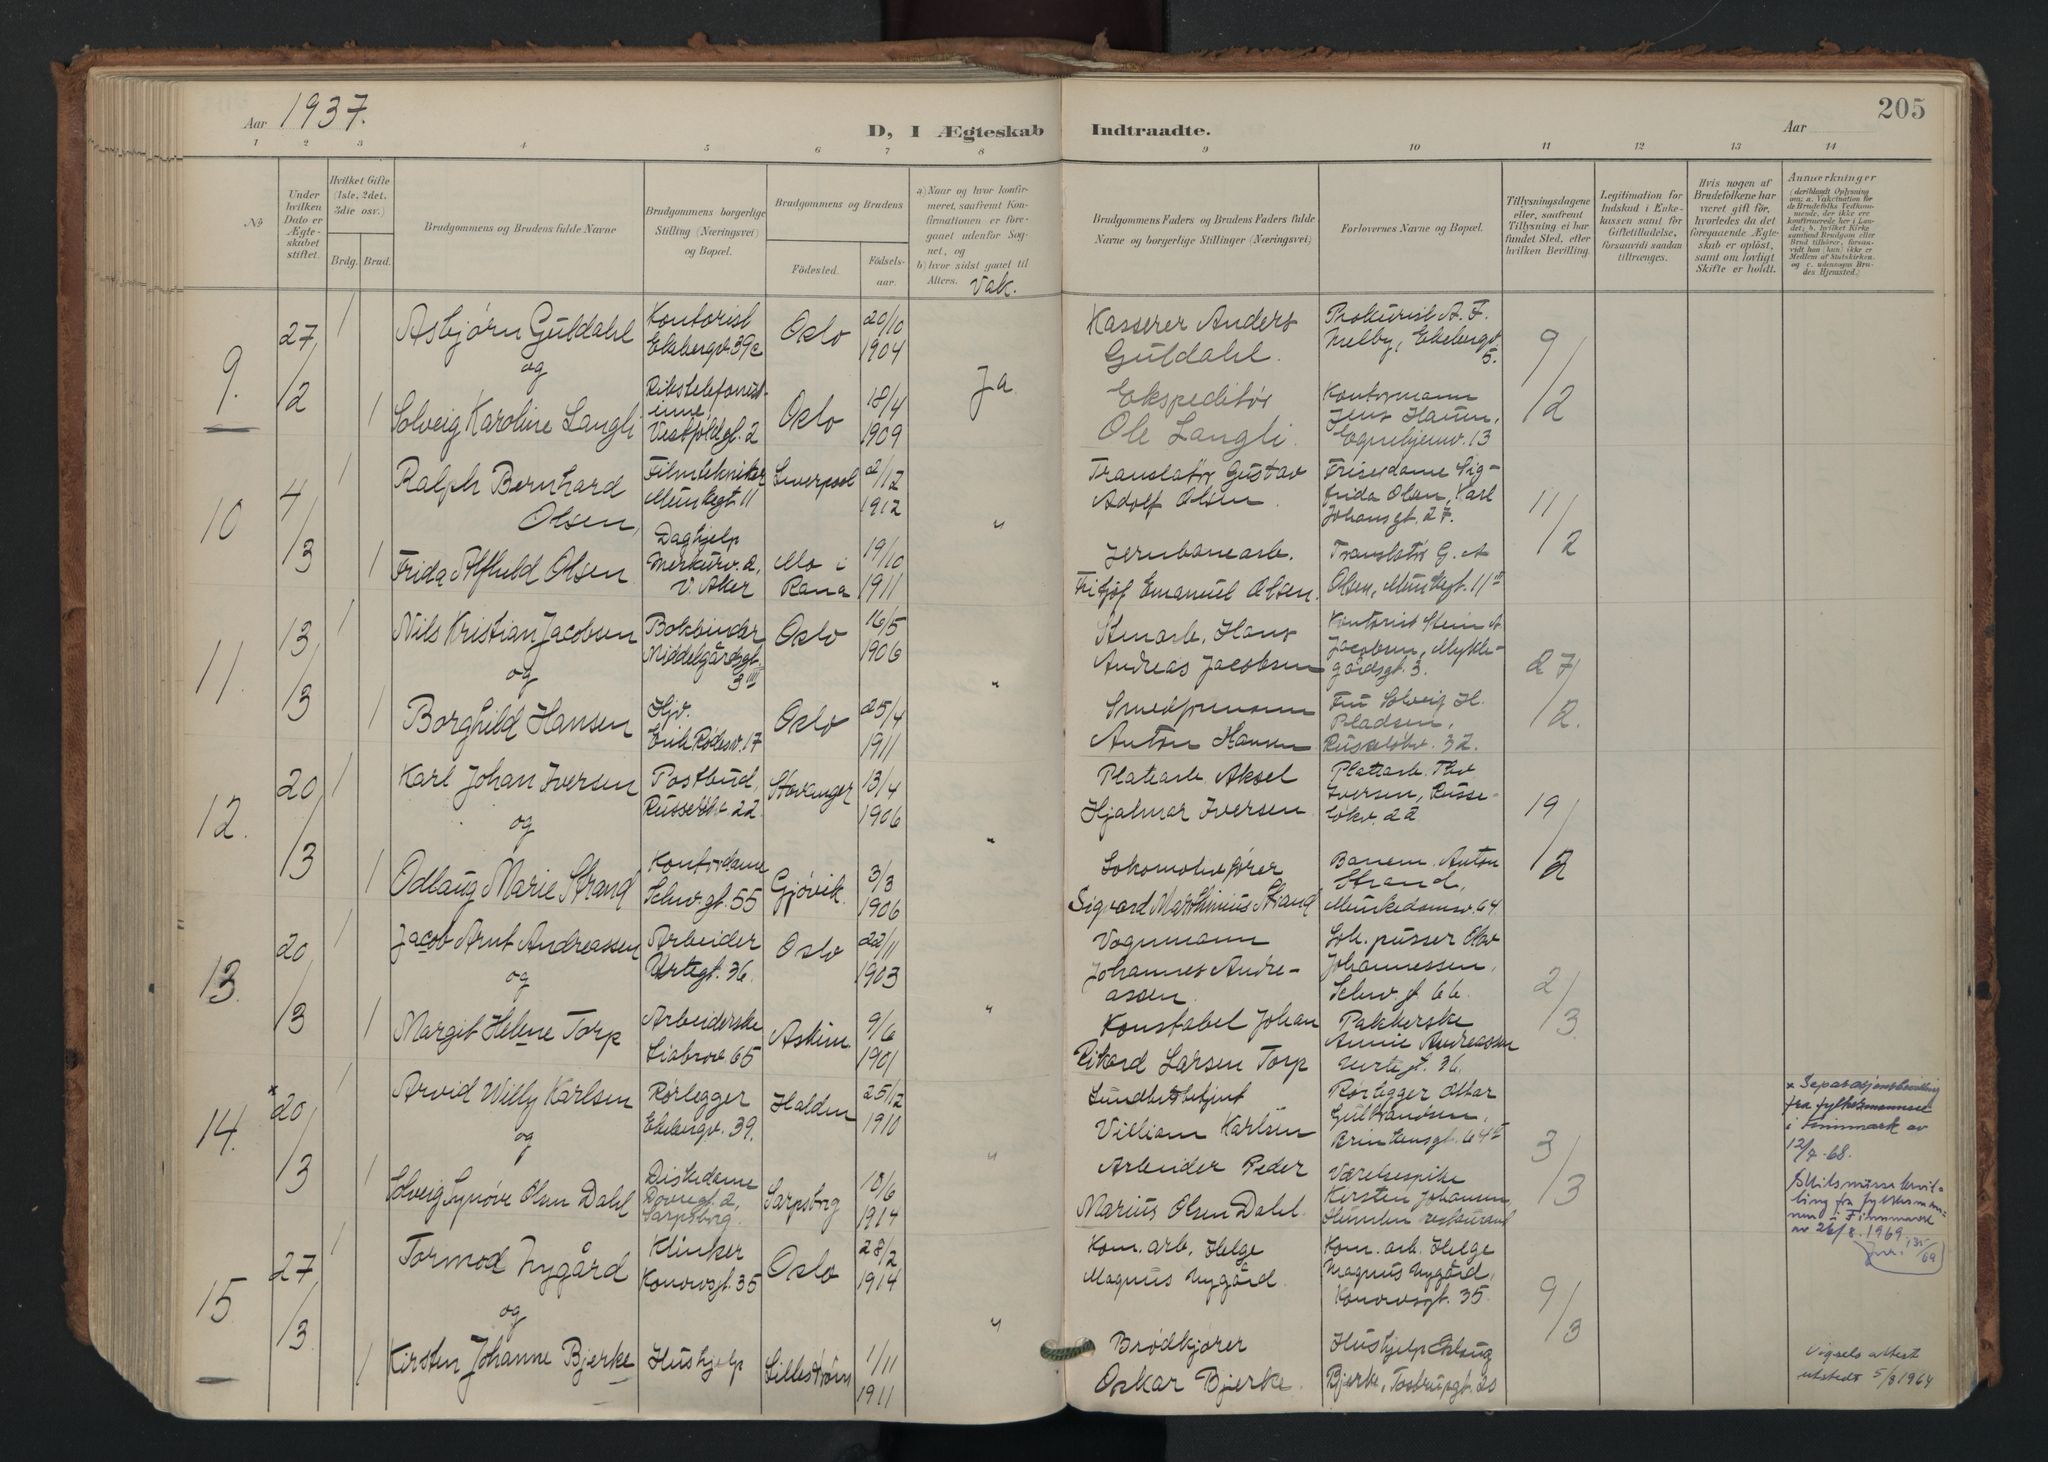 Aar 1937.
D, I Ægteskab Indtraadte.
Aar
205
1 2 3 4 5 6 7 8 9 10 11 12 13 14
No
Under hvilken Dato er Ægteskabet stiftet.
Hvilket Gifte (1ste, 2det, 3die osv.)
Brdg. Brud.
Brudgommens og Brudens fulde Navne
Brudgommens borgerlige Stilling (Næringsvei) og Bopæl.
Brudgommens og Brudens
Fødested. Fødselsaar.
a) Naar og hvor konfirmeret, saafremt Konfirmationen er foregaaet udenfor Sognet, og
b) hvor sidst gaaet til Alters.
Vak.
Brudgommens Faders og Brudens Faders fulde Navne og borgerlige Stillinger (Næringsvei)
Forlovernes Navne og Bopæl.
Tillysningsdagene eller, saafremt Tillysning ei har fundet Sted, efter hvilken Bevilling.
Legitimation for Indskud i Enkekassen samt for Giftetilladelse, forsaavidt saadan tiltrænges.
Hvis nogen af Brudefolkene har været gift før, hvorledes da det foregaaende Ægteskab er opløst, samt om lovligt Skifte er holdt.
Anmærkninger
(deriblandt Oplysning om: a. Vaccination for de Brudefolks Vedkommende, der ikke ere konfirmerede her i Landet; b. hvilket Kirkesamfund Brudgom eller Brud tilhører, forsaavidt han (hun) ikke er Medlem af Statskirken, og c. udensogns Brudes Hjemsted.)
9. 27/2 1 Asbjørn Guldahl Kontorist Ekebergv. 39c Oslo 20/10 1904 Kasserer Anders Guldahl. Prokurist A. F. Melby, Ekebergv. 5. 9/2
og Ja
1 Solveig Karoline Langli Rikstelefonistinne, Vestfoldgt. 2 Oslo 18/4 1909 Ekspeditør Ole Langli. Kontormann Jens Hauen, Egnehjemv. 13
10 4/3 1 Ralph Bernhard Olsen, Filmtekniker Munkegt 11 Liverpool 2/12 1912 " Translatør Gustav Adolf Olsen Friserdame Sigfrida Olsen, Karl Johansgt. 27. 11/2
1 Frida Alfhild Olsen Daghjelp Merkurv. 2, V. Aker Mo i Rana 19/10 1911 Jernbanearb. Fritjof Emanuel Olsen. Translatør G. A Olsen, Munkegt. 11 III
11. 13/3 1 Nils Kristian Jacobsen Bokbinder Middelgårdsgt. 3 III Oslo 16/5 1906 Stenarb. Hans Andreas Jacobsen Kontorist Stein A. Jacobsen, Myklegårdsgt. 3. 27/2.
og "
1 Borghild Hansen Hjv. Erik Rødesv. 17 Oslo 25/4 1911 Smedformann Anton Hansen Fru Solveig H. Pladsen, Russeløkv. 32.
12. 20/3 1 Karl Johan Iversen Postbud, Russeløkv 22 Stavanger 13/4 1906 Platearb. Aksel Hjalmar Iversen Platearb. Thv. Iversen, Russeløkv. 22 19/2
og "
1 Odlaug Marie Strand Kontordame Schwgt. 55 Gjøvik 3/3 1906 Lokomotivfører Sigvard Marthinius Strand Banem. Anton Strand, Munkedamsv. 64
13. 20/3 1 Jacob Arnt Andreassen Arbeider Urtegt. 36. Oslo 22/11 1903 Vognmann Johannes Andreassen. Lok. pusser Olav Johannessen, Schw. gt 66. 2/3.
og "
1 Margit Helene Torp Arbeiderske Liabrov 65 Askim 9/6 1901 Konstabel Johan Rikard Larsen Torp Pakkerske Annie Andreassen Urtegt. 36.
14. x 20/3 1 Arvid Willy Karlsen Rørlegger Ekebergv. 39. Halden 25/12 1910 Villiam Karlsen Rørlegger Ottar Gulbrandsen, 3/3
og "
1 Solveig Synøve Olsen Dahl Diskedame Dovregt 2, Sarpsborg. Sarpsborg 10/6 1914 Arbeider Peder Marius Olsen Dahl. Værelsespike Kirsten Johansen Humlen restaurant
x Separasjonsbevilling fra fylkesmannen i Finnmark av 12/7-68.
Skilsmissebevilling fra fylkesmannen i Finnmark av 26/8. 1969. Jnr. 135/69
15. 27/3 1 Tormod Nygård Klinker Konowsgt. 35 Oslo 28/2 1914 Kom. arb. Helge Magnus Nygård. Kom. arb. Helge Magnus Nygård, Konowsgt. 35. 9/3
og "
1 Kirsten Johanne Bjerke Hushjelp Lillestrøm 1/11 1911 Brødkjører Oskar Bjerke. Hushjelp Bjerke, Tostrupgt. 20
Vigselsattest utstedt 5/8 1964